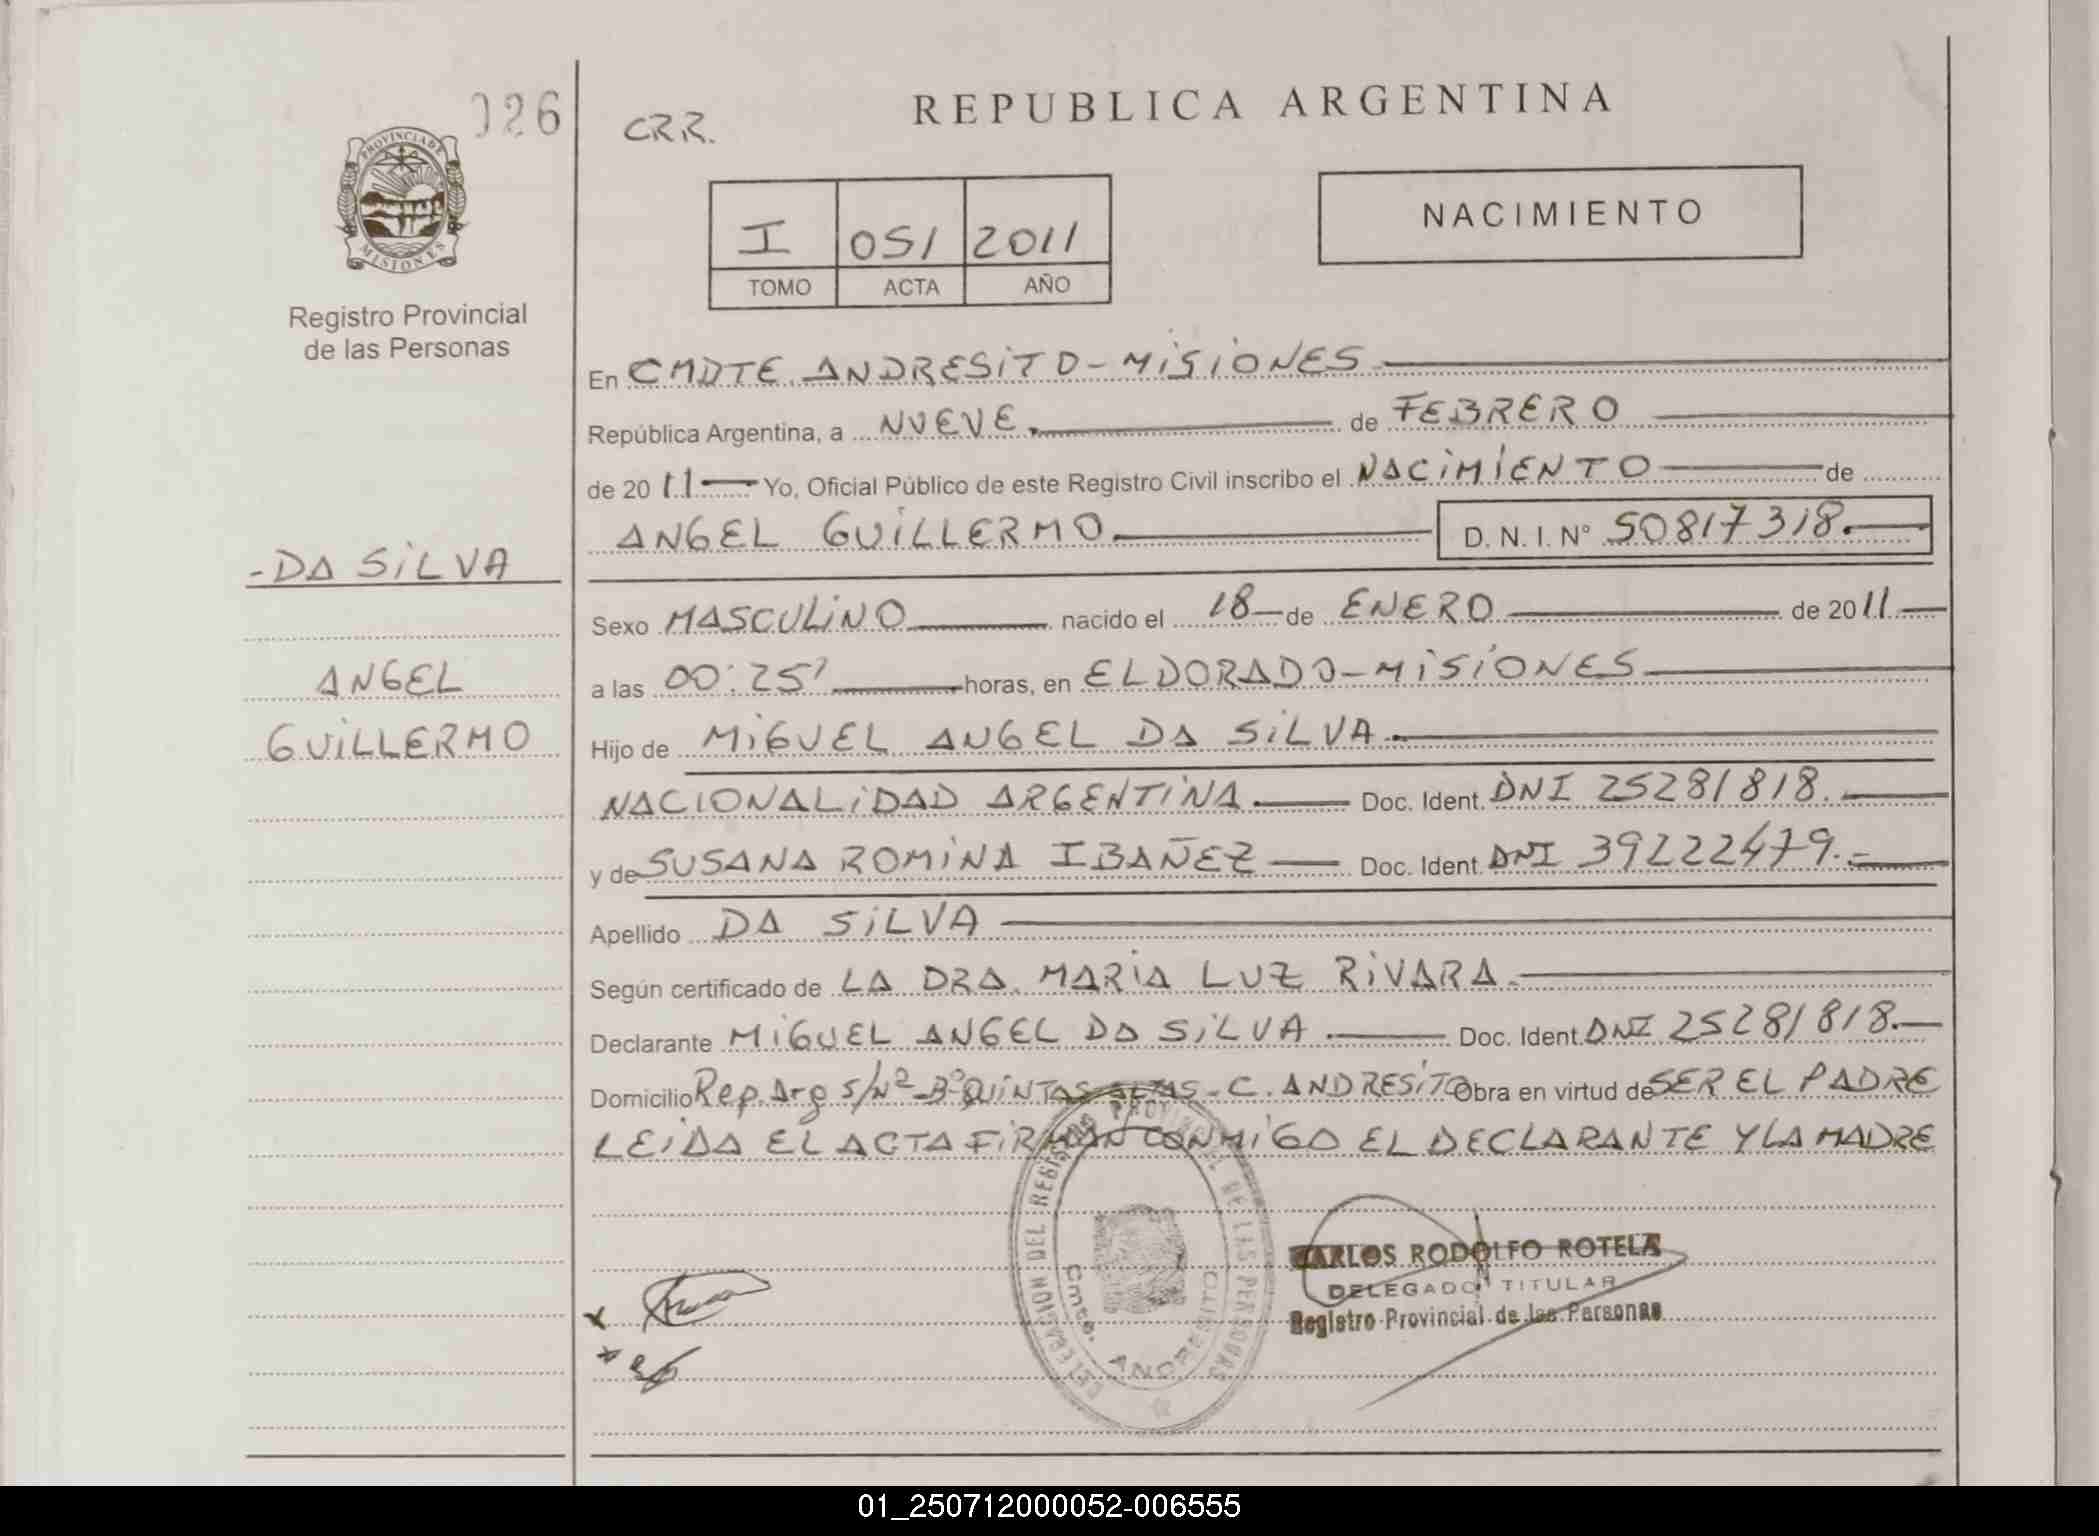 026
PROVINCIA DE
MISIONES
Registro Provincial
de las Personas
-DA SiLVA
ANGEL
GUiLLERMO
CRR.
REPUBLICA ARGENTINA
I 051 2011
TOMO ACTA AÑO
NACIMIENTO
En CMDTE ANDRESiTO-MiSiONES
República Argentina, a NUEVE. de FEBRERO
de 2011 Yo, Oficial Público de este Registro Civil inscribo el NACiMiENTO de
ANGEL GUiLLERMO D. N. I. Nº 50817318.
Sexo MASCULiNO nacido el 18 de ENERO de 2011
a las 00:25' horas, en ELDORADO-MiSiONES
Hijo de MiGUEL ANGEL DA SiLVA.
NACIONALiDAD ARGENTiNA. Doc. Ident. DNI 25281818.
y de SUSANA ROMiNA IBAÑEZ Doc. Ident. DNI 39222479.-
Apellido DA SiLVA
Según certificado de LA DRA. MARiA LUZ RiVARA.
Declarante MiGUEL ANGEL DA SiLVA. Doc. Ident. DNI 25281818.
Domicilio Rep. Arg s/Nº-Bº QUiNTAS ALTAS-C. ANDRESiTO Obra en virtud de SER EL PADRE
LEiDA EL ACTA FiRMAN CONMiGO EL DECLARANTE Y LA MADRE
DELEGACION DEL REGISTRO PROVINCIAL DE LAS PERSONAS
Cmte. ANDRESITO
CARLOS RODOLFO ROTELA
DELEGADO TITULAR
Registro Provincial de las Personas
01_250712000052-006555